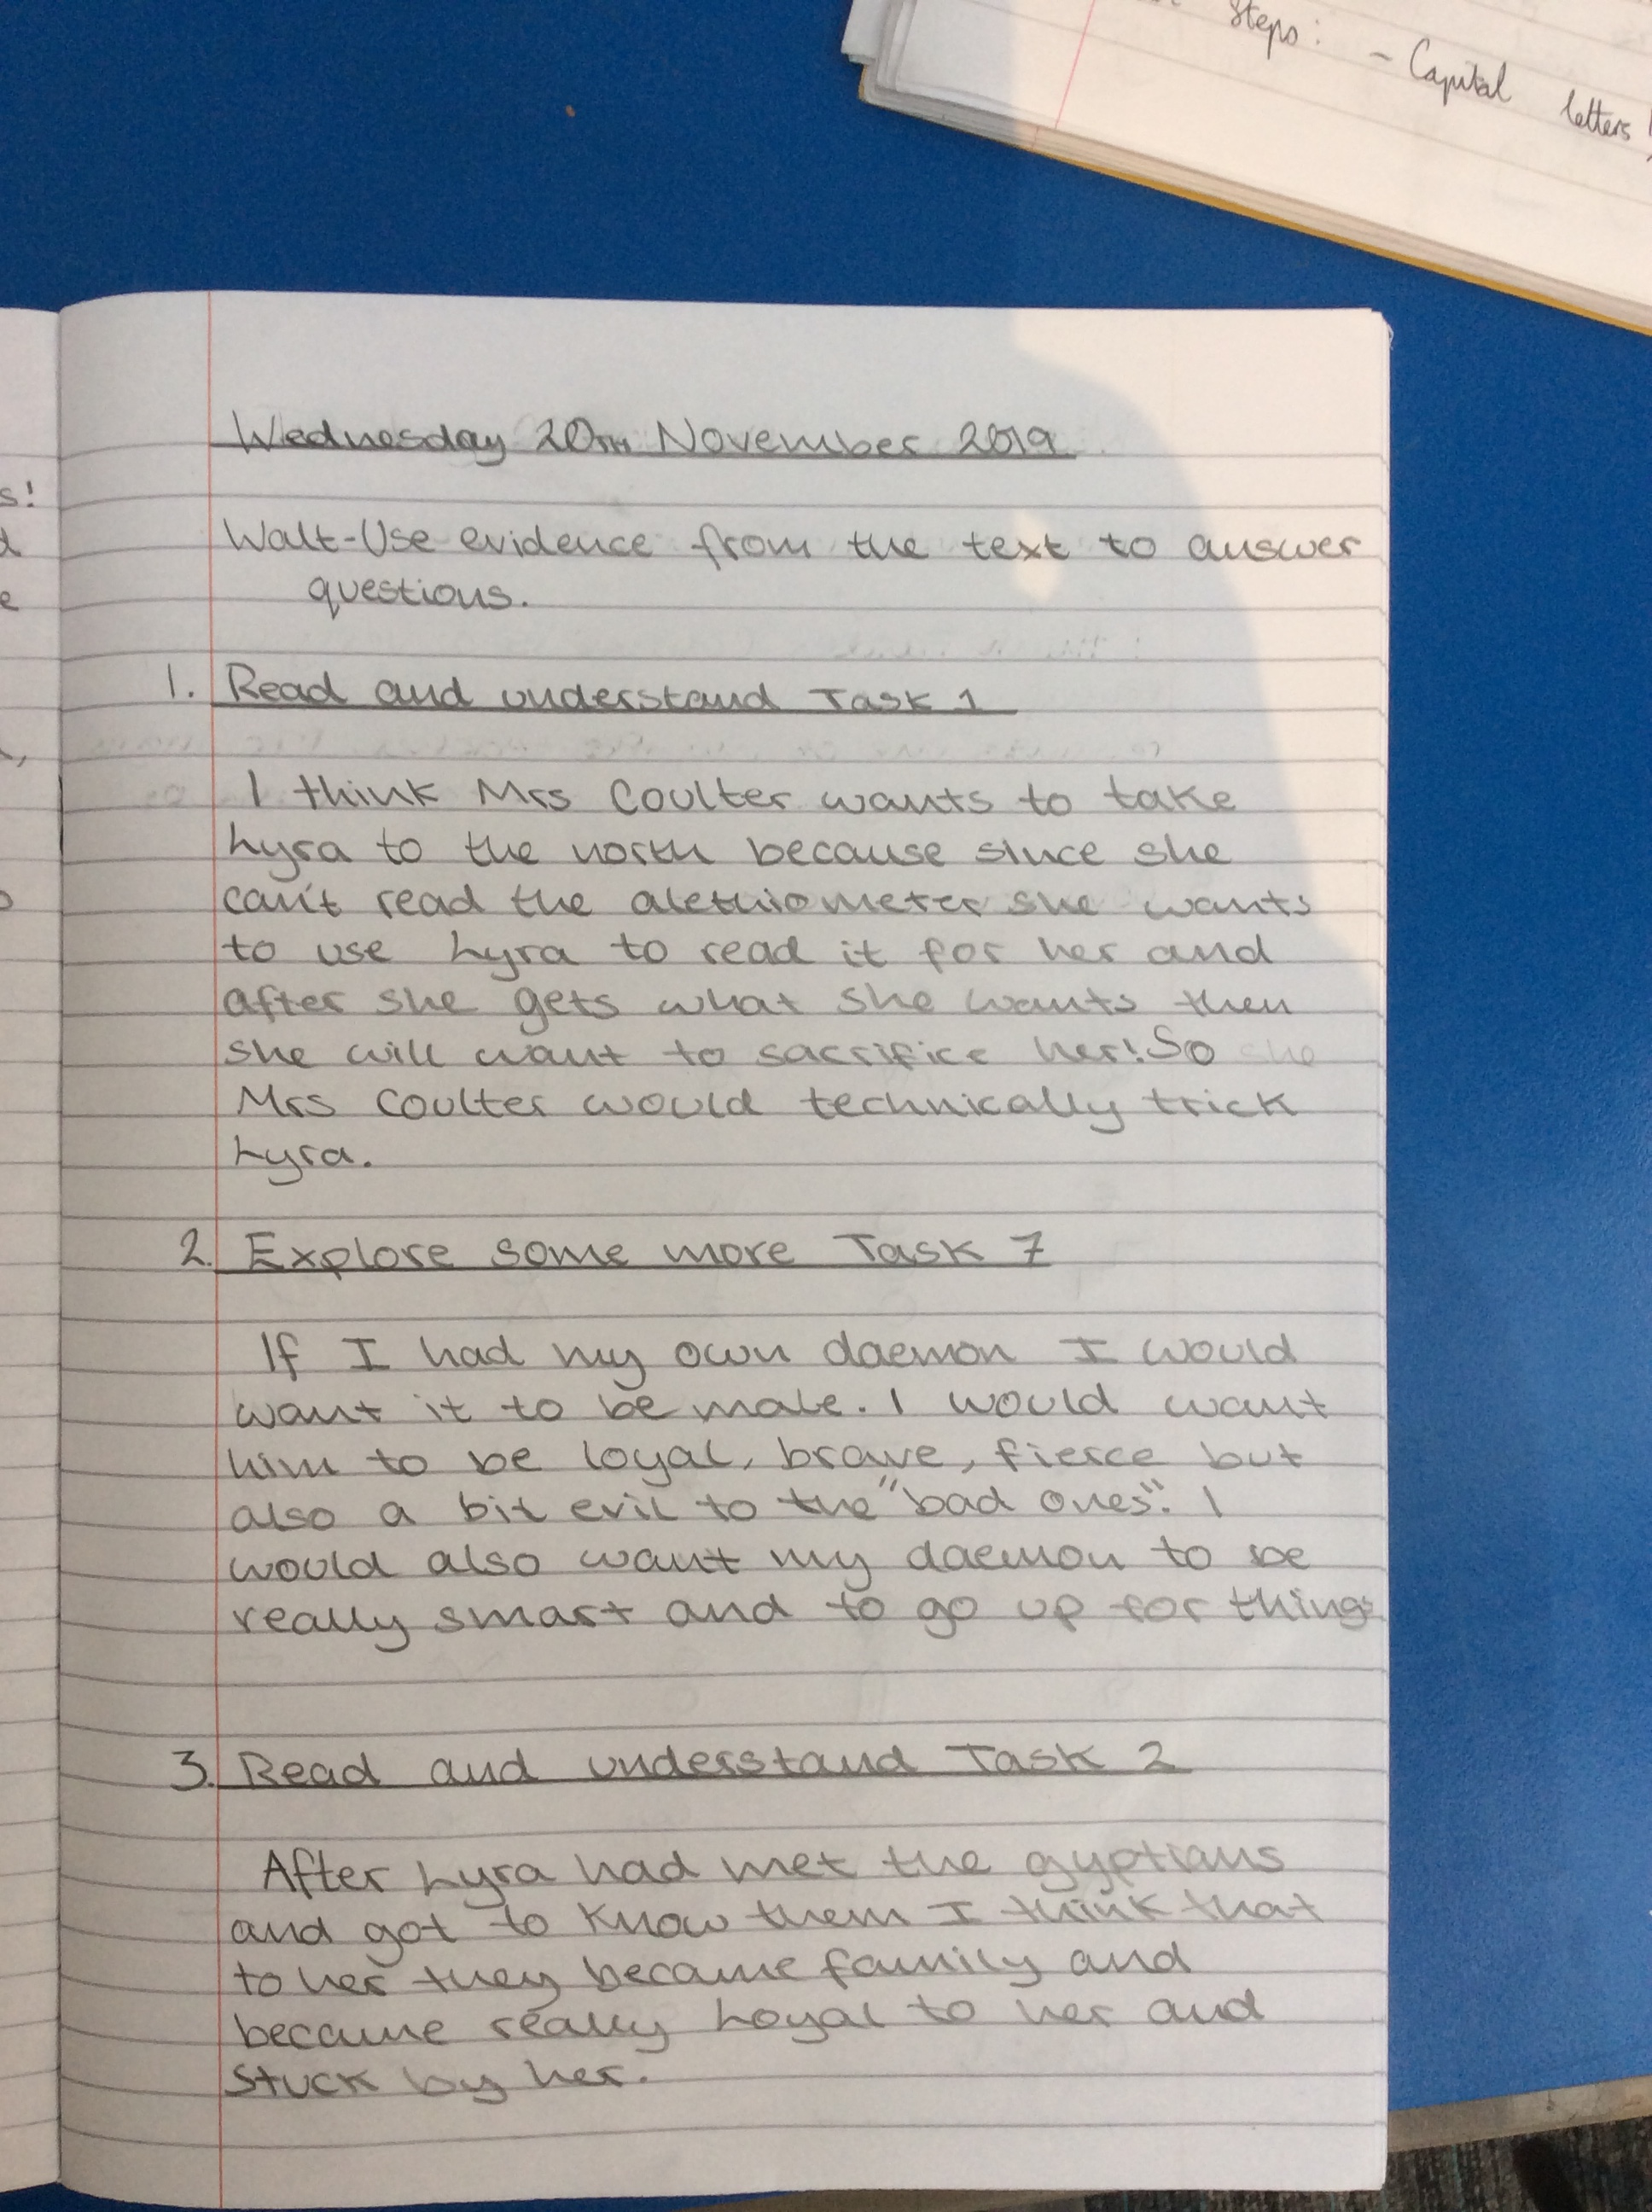 Steps: - Capital letters!
s!
d
e
Wednesday 20TH November 2019
Walt-Use evidence from the text to answer
questions.
1. Read and understand Task 1
I think Mrs Coulter wants to take
Lyra to the north because since she
can't read the alethiometer she wants
to use Lyra to read it for her and
after she gets what she wants then
she will want to sacrifice her! So she
Mrs Coulter would technically trick
Lyra.
2. Explore some more Task 7
If I had my own daemon I would
want it to be male. I would want
him to be loyal, brave, fierce but
also a bit evil to the "bad ones". I
would also want my daemon to be
really smart and to go up for things
3. Read and understand Task 2
After Lyra had met the gyptians
and got to know them I think that
to her they became family and
became really Loyal to her and
stuck by her.